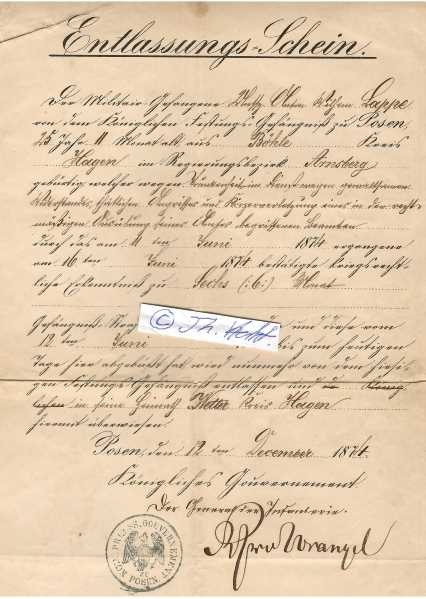 Entlassungs-Schein.
Der Militair-Gefangene Lappe
von dem Königlichen Festungs-Gefängniß zu Posen,
25 Jahr 11 Monat alt aus Böhle Kreis
Hagen im Regierungsbezirk Arnsberg
gebürtig welcher wegen Trunkenheit im Dienst wegen gewaltsamen
Widerstandes, thätlichen Angriffes und eines in der recht-
mäßigen Ausübung seines Amtes begriffenen Beamten
durch das am 11 ten Juni 1874 ergangene
am 16 ten Juni 1874 bestätigte kriegsrecht-
liche Erkenntniß zu Sechs (:6:) Monat
© Th. und diese vom
Gefängniß
12 ten Juni bis zum heutigen
Tage hier abgebüßt hat wird nunmehr von dem hiesi-
gen Festungs-Gefängniß entlassen und
in seine Heimath Wetter Kreis Hagen
hiermit überwiesen.
Posen, den 12 ten December 1874.
Königliches Gouvernement
Der General der Infanterie.
Wrangel
KÖN. PREUSS. GOUVERNEMENT
ZU POSEN.